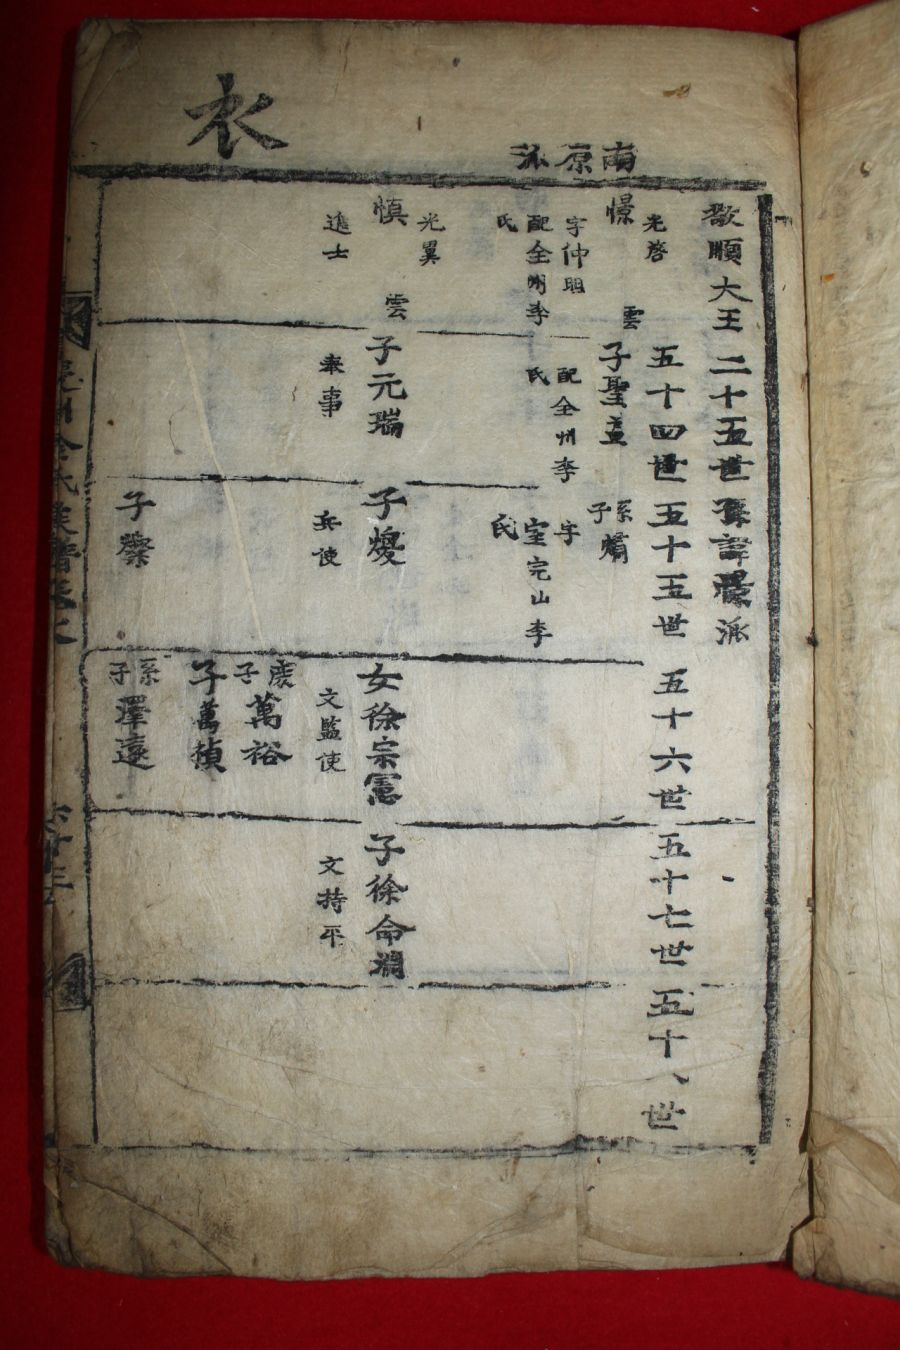 衣
南原派
敬順大王二十五世孫諱㬅派
五十四世
五十五世
五十六世
五十七世
五十八世
光啓
憬
雲
字仲明
配全州李氏
子聖
配全州李氏
系子
字
室完山李氏
光翼
愼
雲
進士
子元瑞
奉事
子
兵使
女徐宗憲
文監使
子徐命
文持平
庶子萬裕
子萬禎
子
系子澤遠